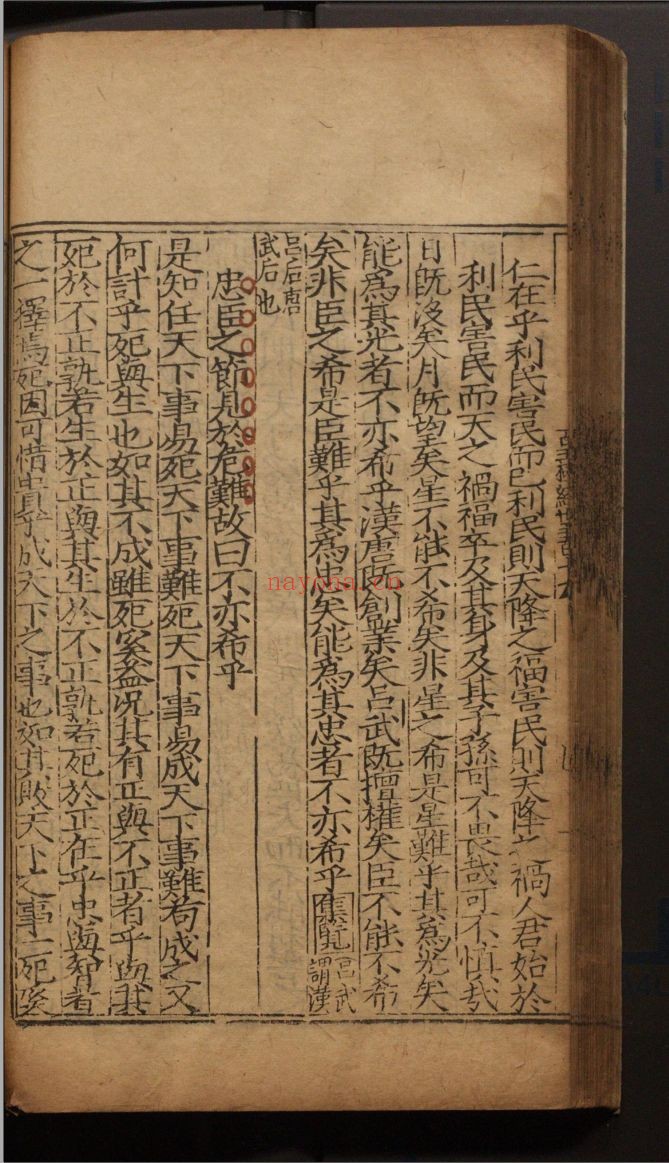 仁在乎利民害民而已利民則天降之福害民則天降之禍人君始於
利民害民而天之禍福卒及其身及其子孫可不畏哉可不慎哉
日既沒矣月既望矣星不能不希矣非星之希是星難乎其爲光矣
能爲其光者不亦希乎漢唐既創業矣呂武既擅權矣臣不能不希
矣非臣之希是臣難乎其爲忠矣能爲其忠者不亦希乎集覽呂武謂漢
呂后唐武后也
忠臣之節見於危難故曰不亦希乎
是知任天下事易死天下事難死天下事易成天下事難苟成之又
何計乎死與生也如其不成雖死奚益况其有正與不正者乎與其
死於不正孰若生於正與其生於不正孰若死於正在乎忠與智者
之一擇焉死固可惜貴乎成天下之事也如其敗天下之事一死奚
nayona.cn